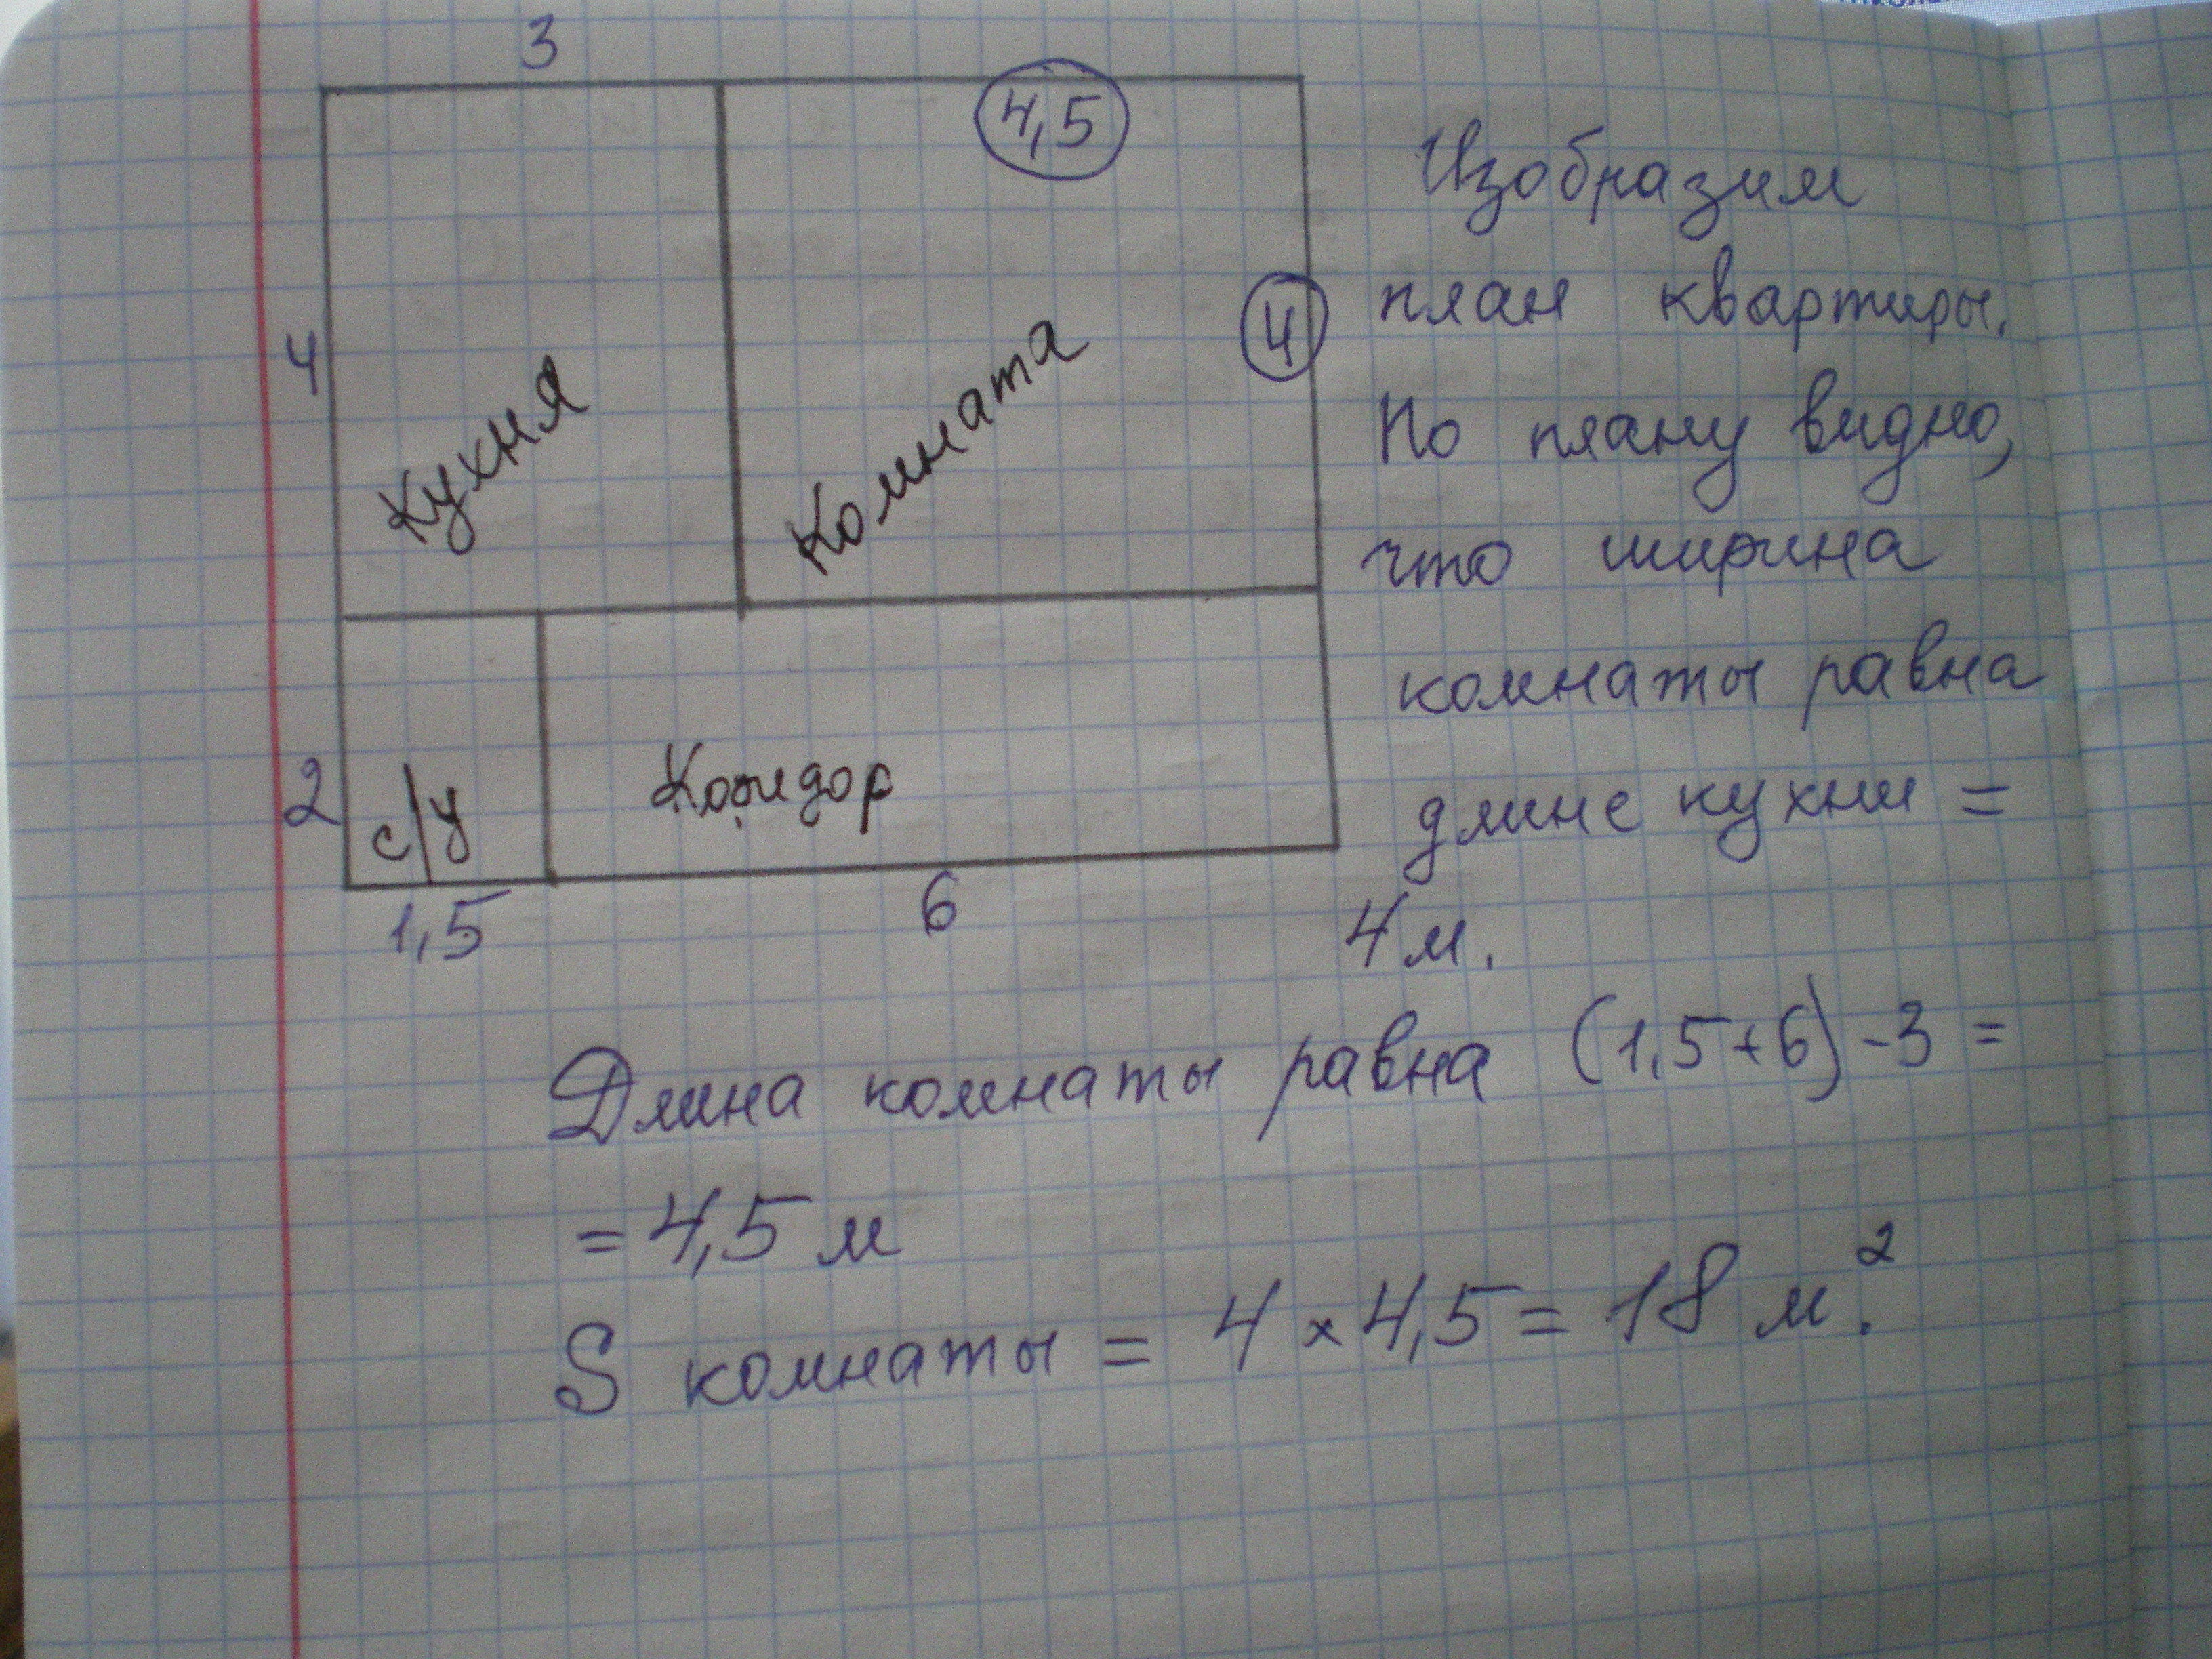 3
4,5
Изобразим
4
план квартиры.
4
Кухня
Комната
По плану видно,
что ширина
комнаты равна
2
с/у
Коридор
длине кухни =
1,5
6
4 м.
Длина комнаты равна (1,5+6)-3=
= 4,5 м
S комнаты = 4 × 4,5 = 18 м².